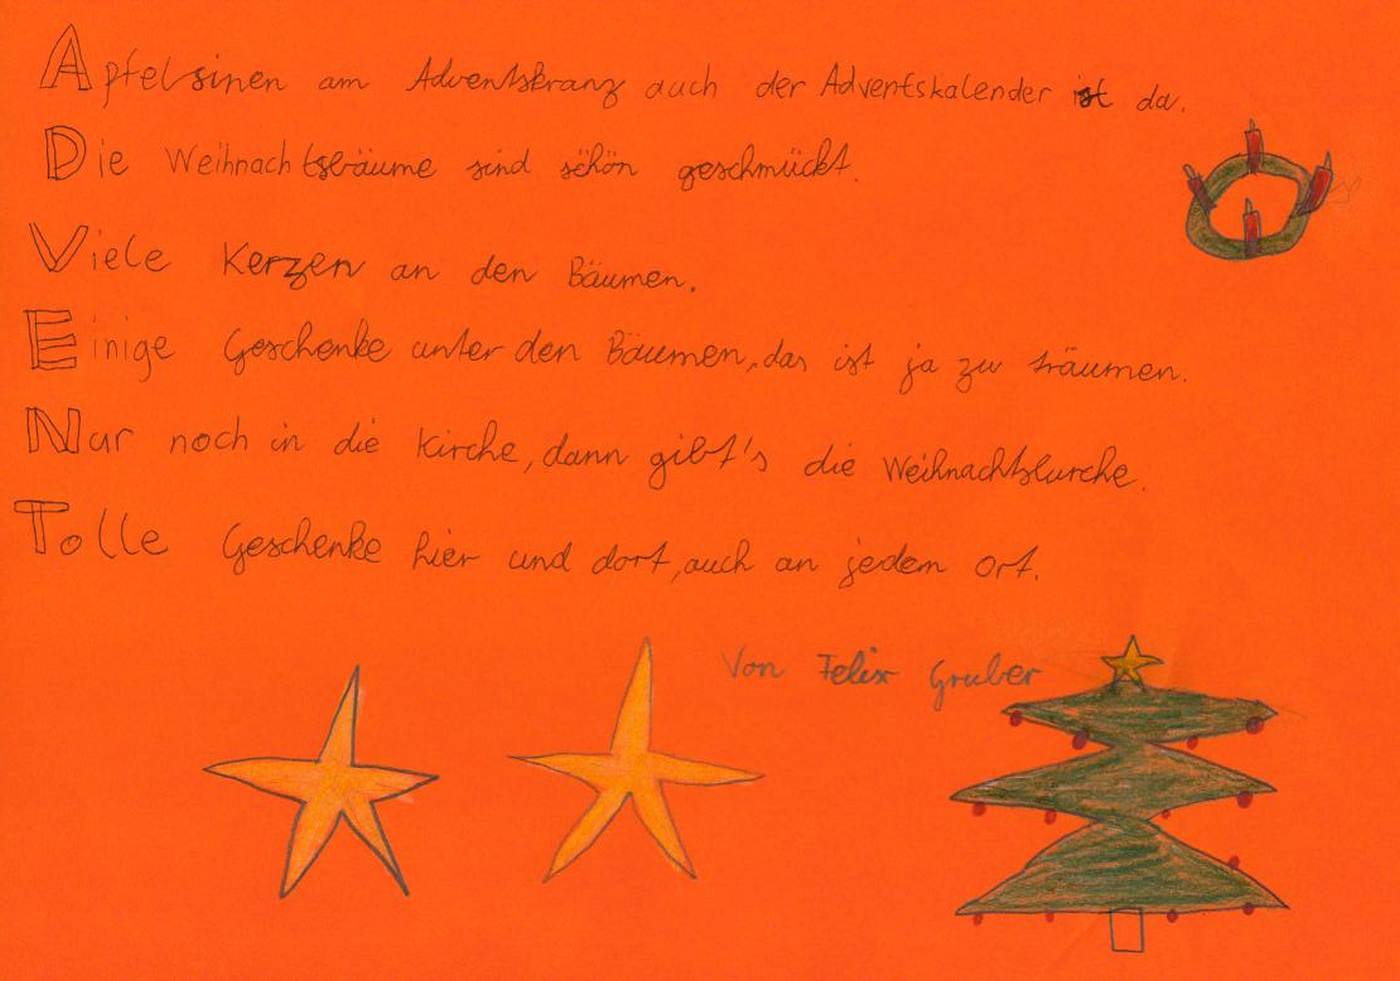 Apfelsinen am Adventskranz auch der Adventskalender ist da.
Die Weihnachtsbäume sind schön geschmückt.
Viele Kerzen an den Bäumen.
Einige Geschenke unter den Bäumen, das ist ja zu träumen.
Nur noch in die Kirche, dann gibt's die Weihnachtslurche.
Tolle Geschenke hier und dort, auch an jedem Ort.
Von Felix Gruber